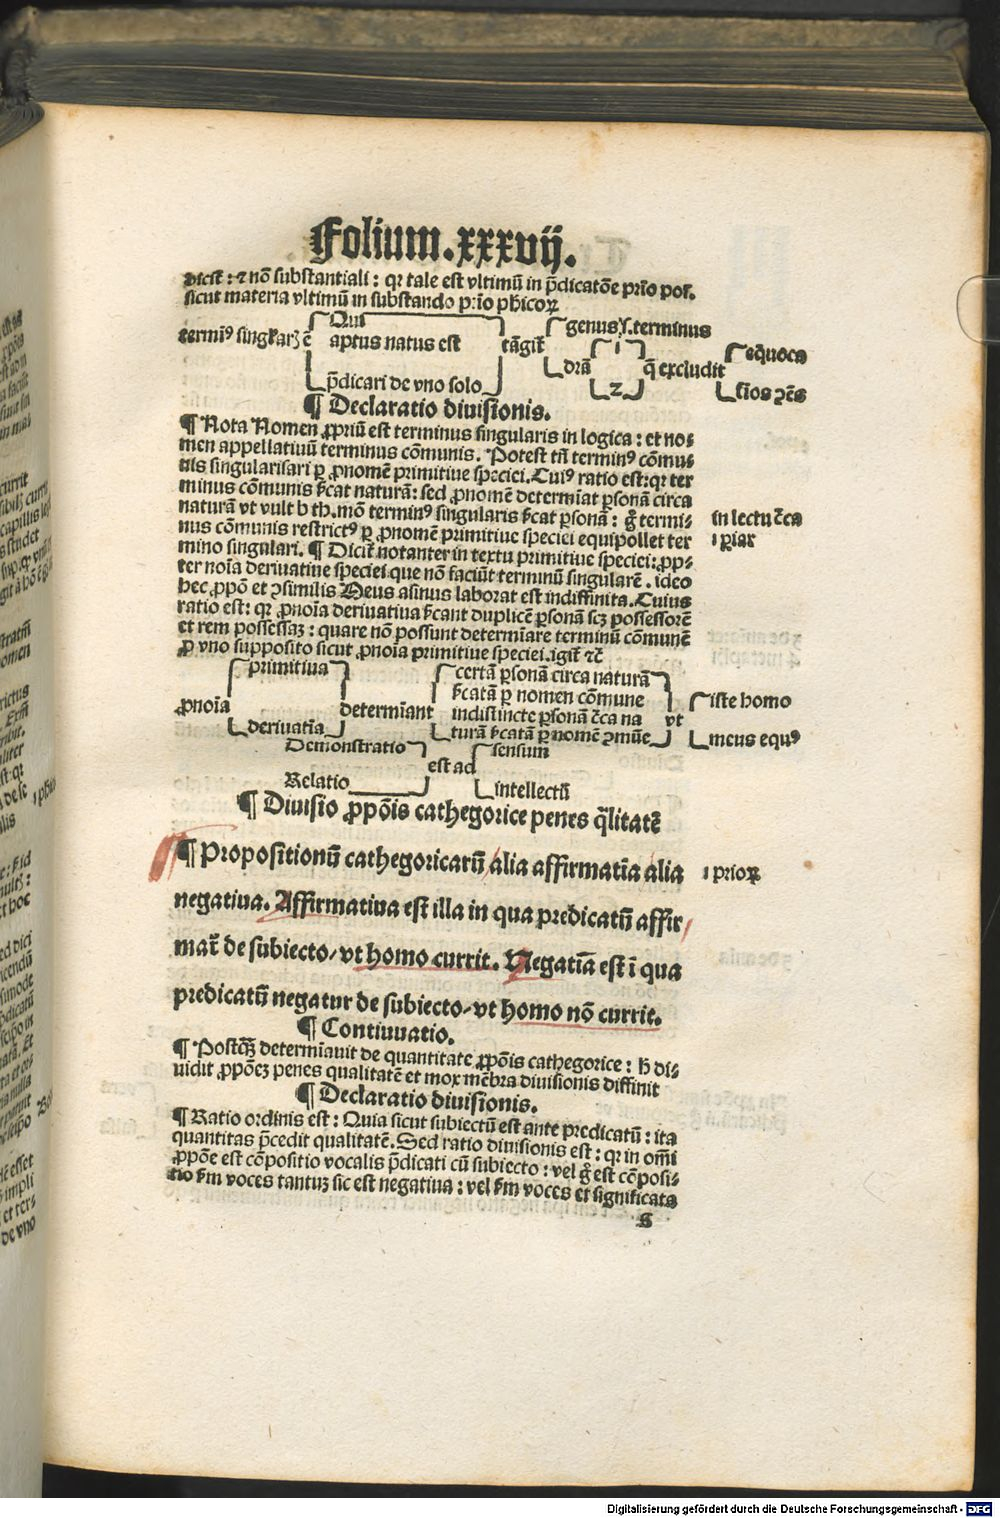 Folium.xxxvij.
dicit̄ : ⁊ nō substantiali : qꝛ tale est vltimū in p̄dicatōe prīo poſ.
sicut materia vltimū in substando prīo phicoꝝ
Qui
genus ſ. terminus
termiꝰ singkarꝫ ē
aptus natus est
tāgit̄
i
eq̄uoca
drā
q̄ excludit
p̄dicari de vno solo
2
sīos ꝯēs
¶ Declaratio diuisionis.
¶ Nota Nomen ꝓpriū est terminus singularis in logica : et no⸗
men appellatiuū terminus cōmunis. Potest tn̄ terminꝰ cōmu⸗
nis singularisari ꝑ ꝓnomē primitiue speciei. Cuiꝰ ratio est: qꝛ ter
minus cōmunis ſcat naturā: sed ꝓnomē determīat ꝑsonā circa
naturā vt vult b th. mō terminꝰ singularis ſcat ꝑsonā : g̊ termi⸗
in lectu c̄ca
nus cōmunis restrictꝰ ꝑ ꝓnomē primitiue speciei equipollet ter
i ꝑiar
mino singulari. ¶ Dicit̄ notanter in textu primitiue speciei: ꝓp⸗
ter noīa deriuatiue speciei que nō faciūt terminū singularē . ideo
hec ꝓpō et ꝯsimilis Meus asinus laborat est indiffinita. Cuius
ratio est: qꝛ ꝓnoīa deriuatiua ſcant duplicē ꝑsonā scꝫ possessorē
et rem possessaꝫ : quare nō possunt determīare terminū cōmunē
ꝓ vno supposito sicut ꝓnoīa primitiue speciei. igit̄ ⁊c̄
primitiua
certā ꝑsonā circa naturā
ſcatā ꝑ nomen cōmune
iste homo
ꝓnoīa
determīant
indistincte ꝑsonā c̄ca na
vt
deriuatīa
turā ſcatā ꝑ nomē ꝯmūe
meus equꝰ
Demonstratio
sensum̄
est ad
Relatio
intellectū
¶ Diuisio ꝓpōis cathegorice penes q̄litatē
¶ Propositionū cathegoricarū alia affirmatīa alia
i prioꝝ
negatiua. Affirmatiua est illa in qua predicatū affir
mat̄ de subiecto/ vt homo currit. Negatīa est ī qua
predicatū negatur de subiecto/ vt homo nō currit.
¶ Contiuuatio.
¶ Postq̄ꝫ determīauit de quantitate ꝓpōis cathegorice : h̄ di⸗
uidit ꝓpōeꝫ penes qualitatē et mox mēbra diuisionis diffinit
¶ Declaratio diuisionis.
¶ Ratio ordinis est : Quia sicut subiectū est ante predicatū : ita
quantitas p̄cedit qualitatē. Sed ratio diuisionis est : qꝛ in omī
ꝓpōe est cōpositio vocalis p̄dicati cū subiecto : vel g̊ est cōposi⸗
tio ſm voces tantuꝫ sic est negatiua : vel ſm voces et significata
s
Digitalisierung gefördert durch die Deutsche Forschungsgemeinschaft - DFG